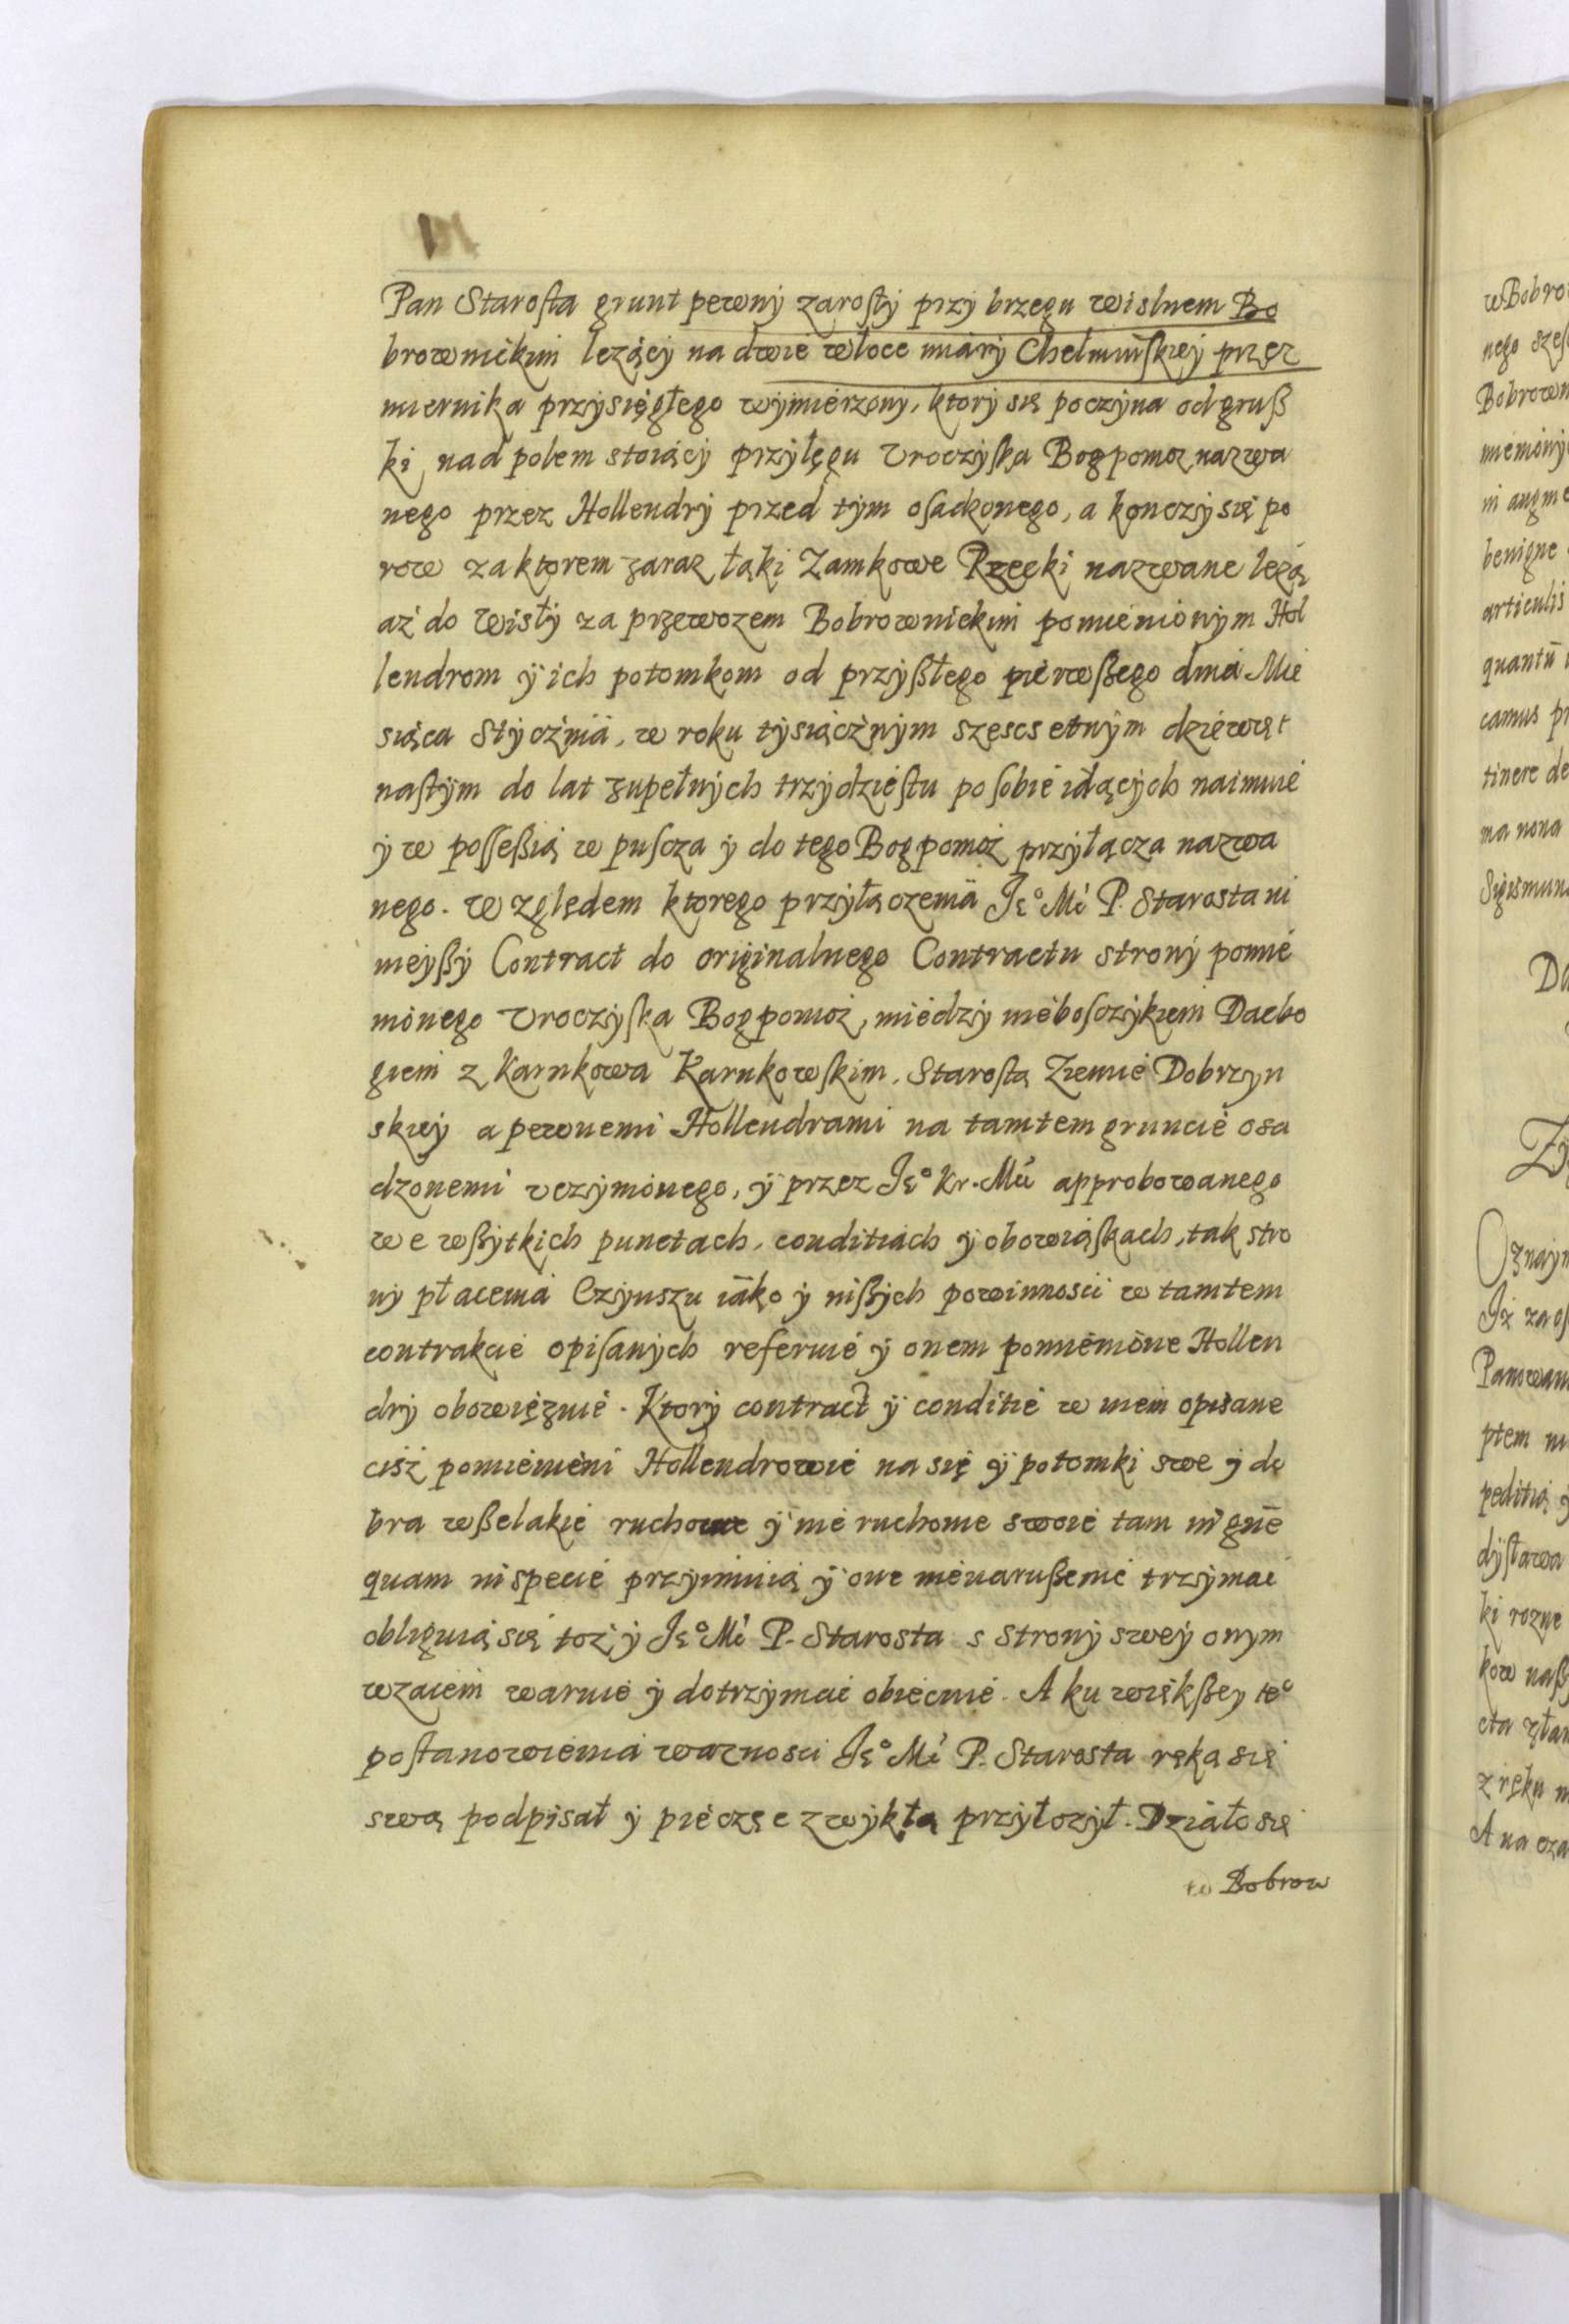 Pan Starosta grunt pewny zarosły przy brzegu wislnem Bo
brownickim lezący na dwie włoce miary Chełminskiey przez
miernika przysięgłego wymierzony, ktory się poczyna od gruß
ki nad polem stoiący przyłęgu Uroczyska Bogpomoz nazwa
nego przez Hollendry przed tym osadzonego, a konczy się po
row za ktorem zaraz łąki Zamkowe Rzeçki nazwane lezą
aż do Wisły za przewozem Bobrownickim pomienionym Hol
lendrom y ich potomkom od przyßłego pierwßego dnia Mie
siąca Stycznia, w roku tysiącznym szescsetnym dziewięt
nastym do lat zupełnych trzydziestu po sobie idących naimuie
y w possessią w puscza y do tego Bogpomoż przyłącza nazwa
nego. W zględem ktorego przyłączenia Jeº Mći P. Starosta ni
nieyßy Contract do originalnego Contractu strony pomie
nionego Uroczyska Bogpomoż, miedzy nieboscykiem Dadzbo
giem z Karnkowa Karnkowskim, Starostą Ziemie Dobrzyn
skiey a pewnemi Hollendrami na tamtem gruncie osa
dzonemi uczynionego, y przez Jeº Kr. Mći approbowanego
we wßytkich punctach, conditiach y obowiąskach, tak stro
ny płacenia Czynszu iako y inßych powinnosci w tamtem
contrakcie opisanych referuie y onem pomienione Hollen
dry obowięzuie. Ktory contract y conditie w niem opisane
ciśż pomienieni Hollendrowie na się y potomki swe y do
bra wßelakie ruchome y nie ruchome swoie tam in genē
quam in specie przyimuią y one nienarußenie trzymac
obliguią się toż y Jeº Mći P. Starosta s strony swey onym
wzaiem waruie y dotrzymac obiecuie. A ku więkßey teº
postanowienia waznosci Jeº Mći P. Starosta ręką się
swą podpisał y pieczęc zwykłą przyłozył. Działo się
w Bobrow